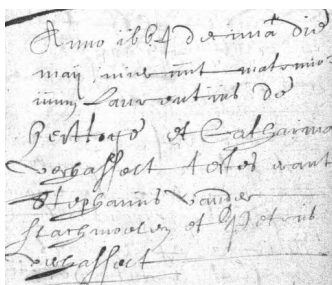 Anno 1664 decima die
maij iniverunt matrimo-
nium Laurentius de
Hertoge et Catharina
Verhasselt testes erant
Stephanus Vander
et Petrus
Verhasselt